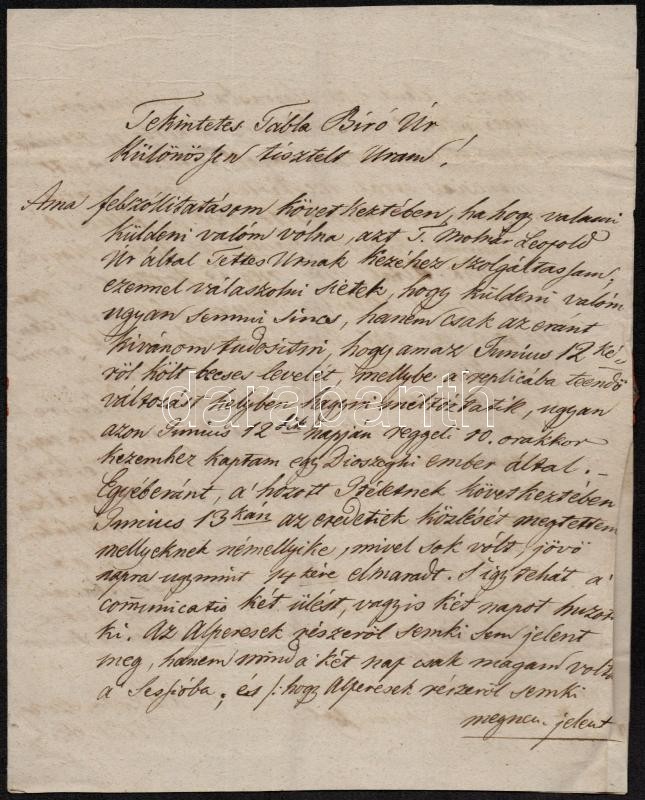 Tekintetes Tábla Biró Úr
Különössen tisztelt Uram!
Ama felszóllitatásom következtében, ha hogy valami
küldeni valóm volna, azt T. Molnár Leopold
Úr által Tettes Urnak kezéhez szolgáltassam,
ezennel válaszolni sietek, hogy küldeni valóm
ugyan semmi sincs, hanem csak az eránt
kivánom tudositni, hogy amaz Junius 12 ké-
ről költ becses levelét, mellybe a replicába teendő
változást helyben hagyni méltóztatik, ugyan
azon Junius 12dik napján reggeli 10. orakkor
kezemhez kaptam egy Dioszeghi ember által. –
Egyéberánt, a' hozott Itéletnek következtében
Junius 13kan az eredetiek közlését megtettem
mellyeknek némellyike, mivel sok vólt, jövő
napra ugymint 14kére elmaradt. S igy tehát a'
communicatio két ülést, vagyis két napot huzott
ki. Az Alperesek részéről semki sem jelent
meg, hanem mind a' két nap csak magam voltam
a' Sessioba; és /: hogy Alperesek részéről semki
megnem jelent
darabanth